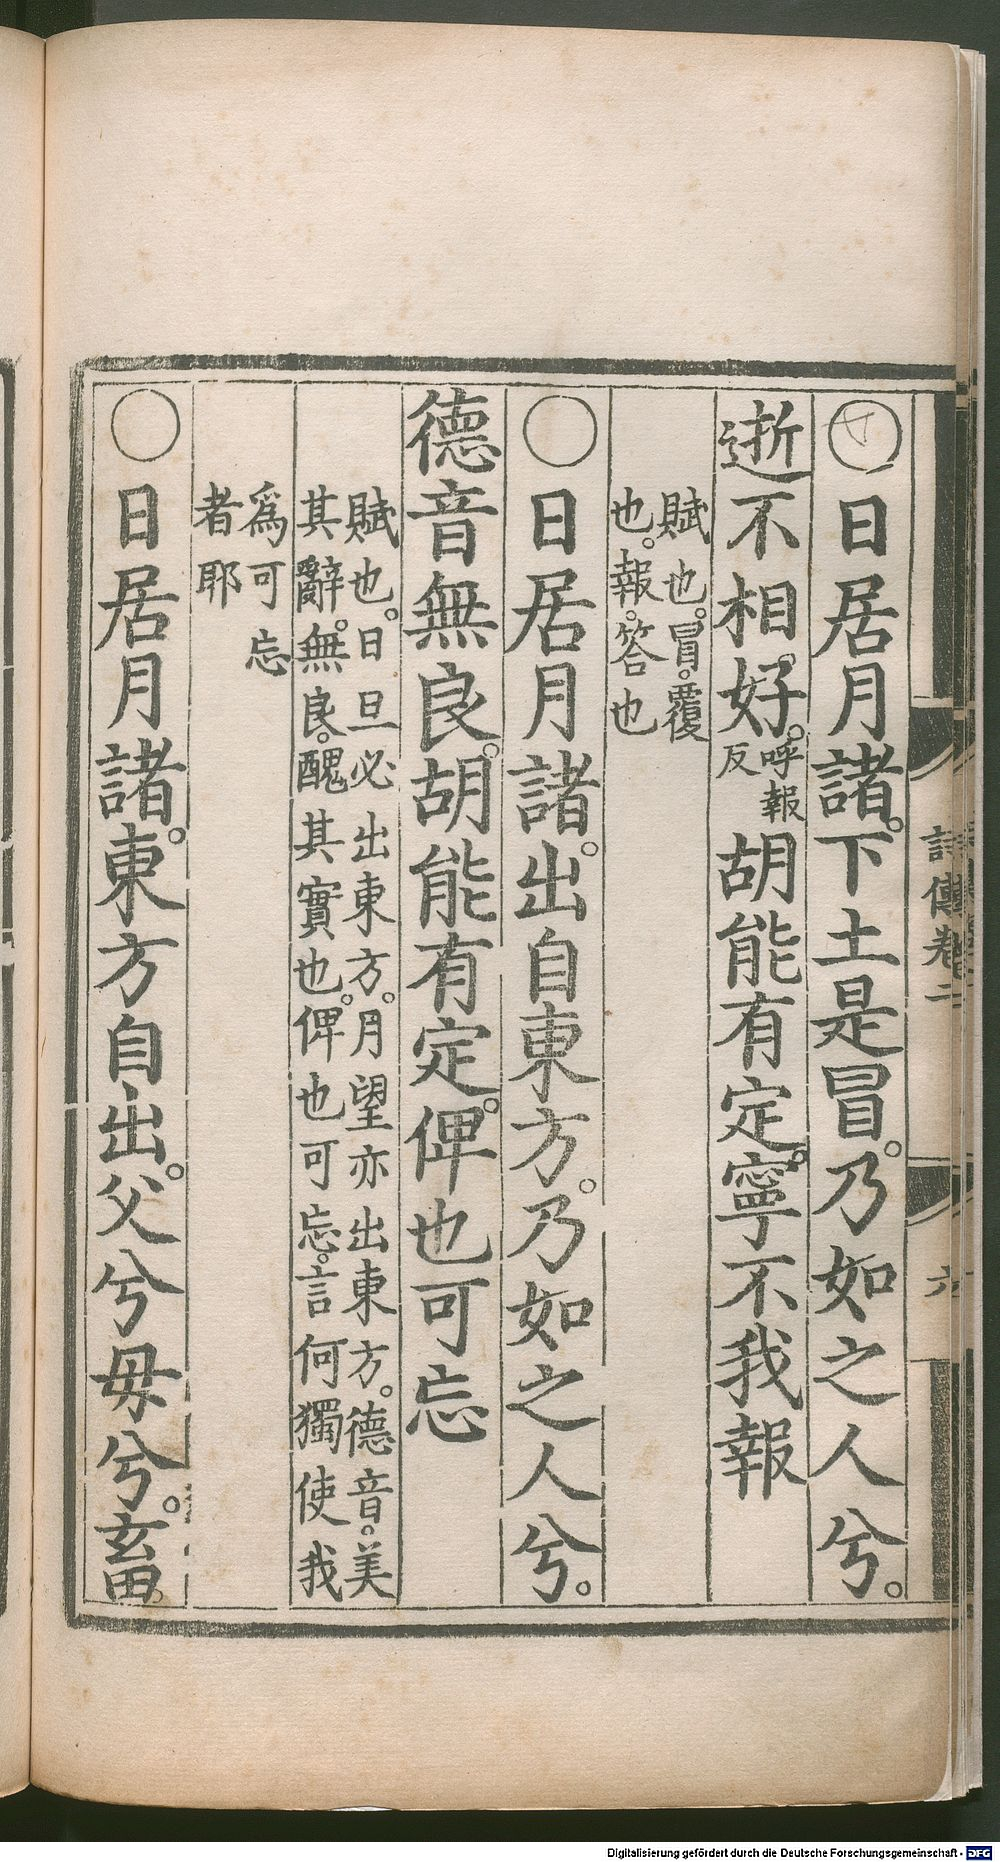 詩傳卷二
六
〇日居月諸。下土是冒。乃如之人兮。
逝不相好。呼報反胡能有定。寧不我報
賦也。冒。覆
也。報。答也
〇日居月諸。出自東方。乃如之人兮。
德音無良。胡能有定。俾也可忘
賦也。日旦必出東方。月望亦出東方。德音。美
其辭。無良。醜其實也。俾也可忘。言何獨使我
爲可忘
者耶
〇日居月諸。東方自出。父兮母兮。畜
Digitalisierung gefördert durch die Deutsche Forschungsgemeinschaft - DFG